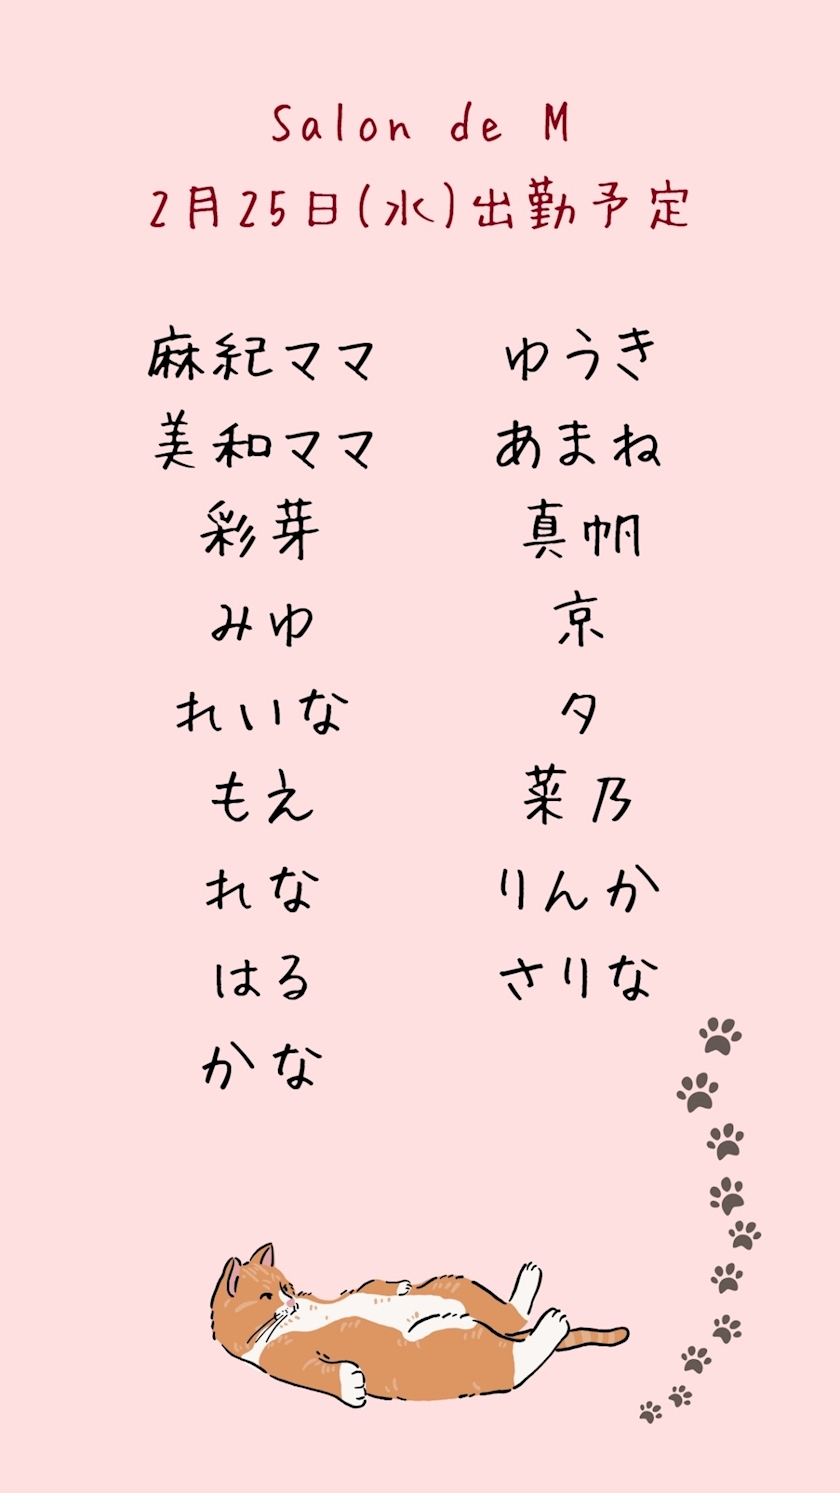 Salon de M
2月25日(水)出勤予定
麻紀ママ
美和ママ
彩芽
みゆ
れいな
もえ
れな
はる
かな
ゆうき
あまね
真帆
京
夕
菜乃
りんか
さりな